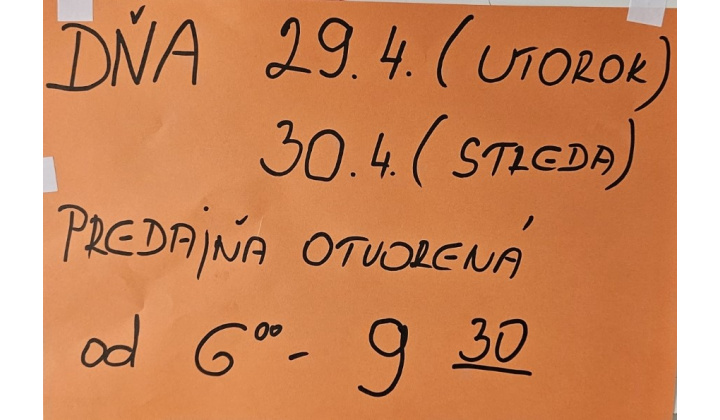 DŇA 29.4. (UTOROK)
30.4. (STREDA)
PREDAJŇA OTVORENÁ
od 6⁰⁰- 9 30